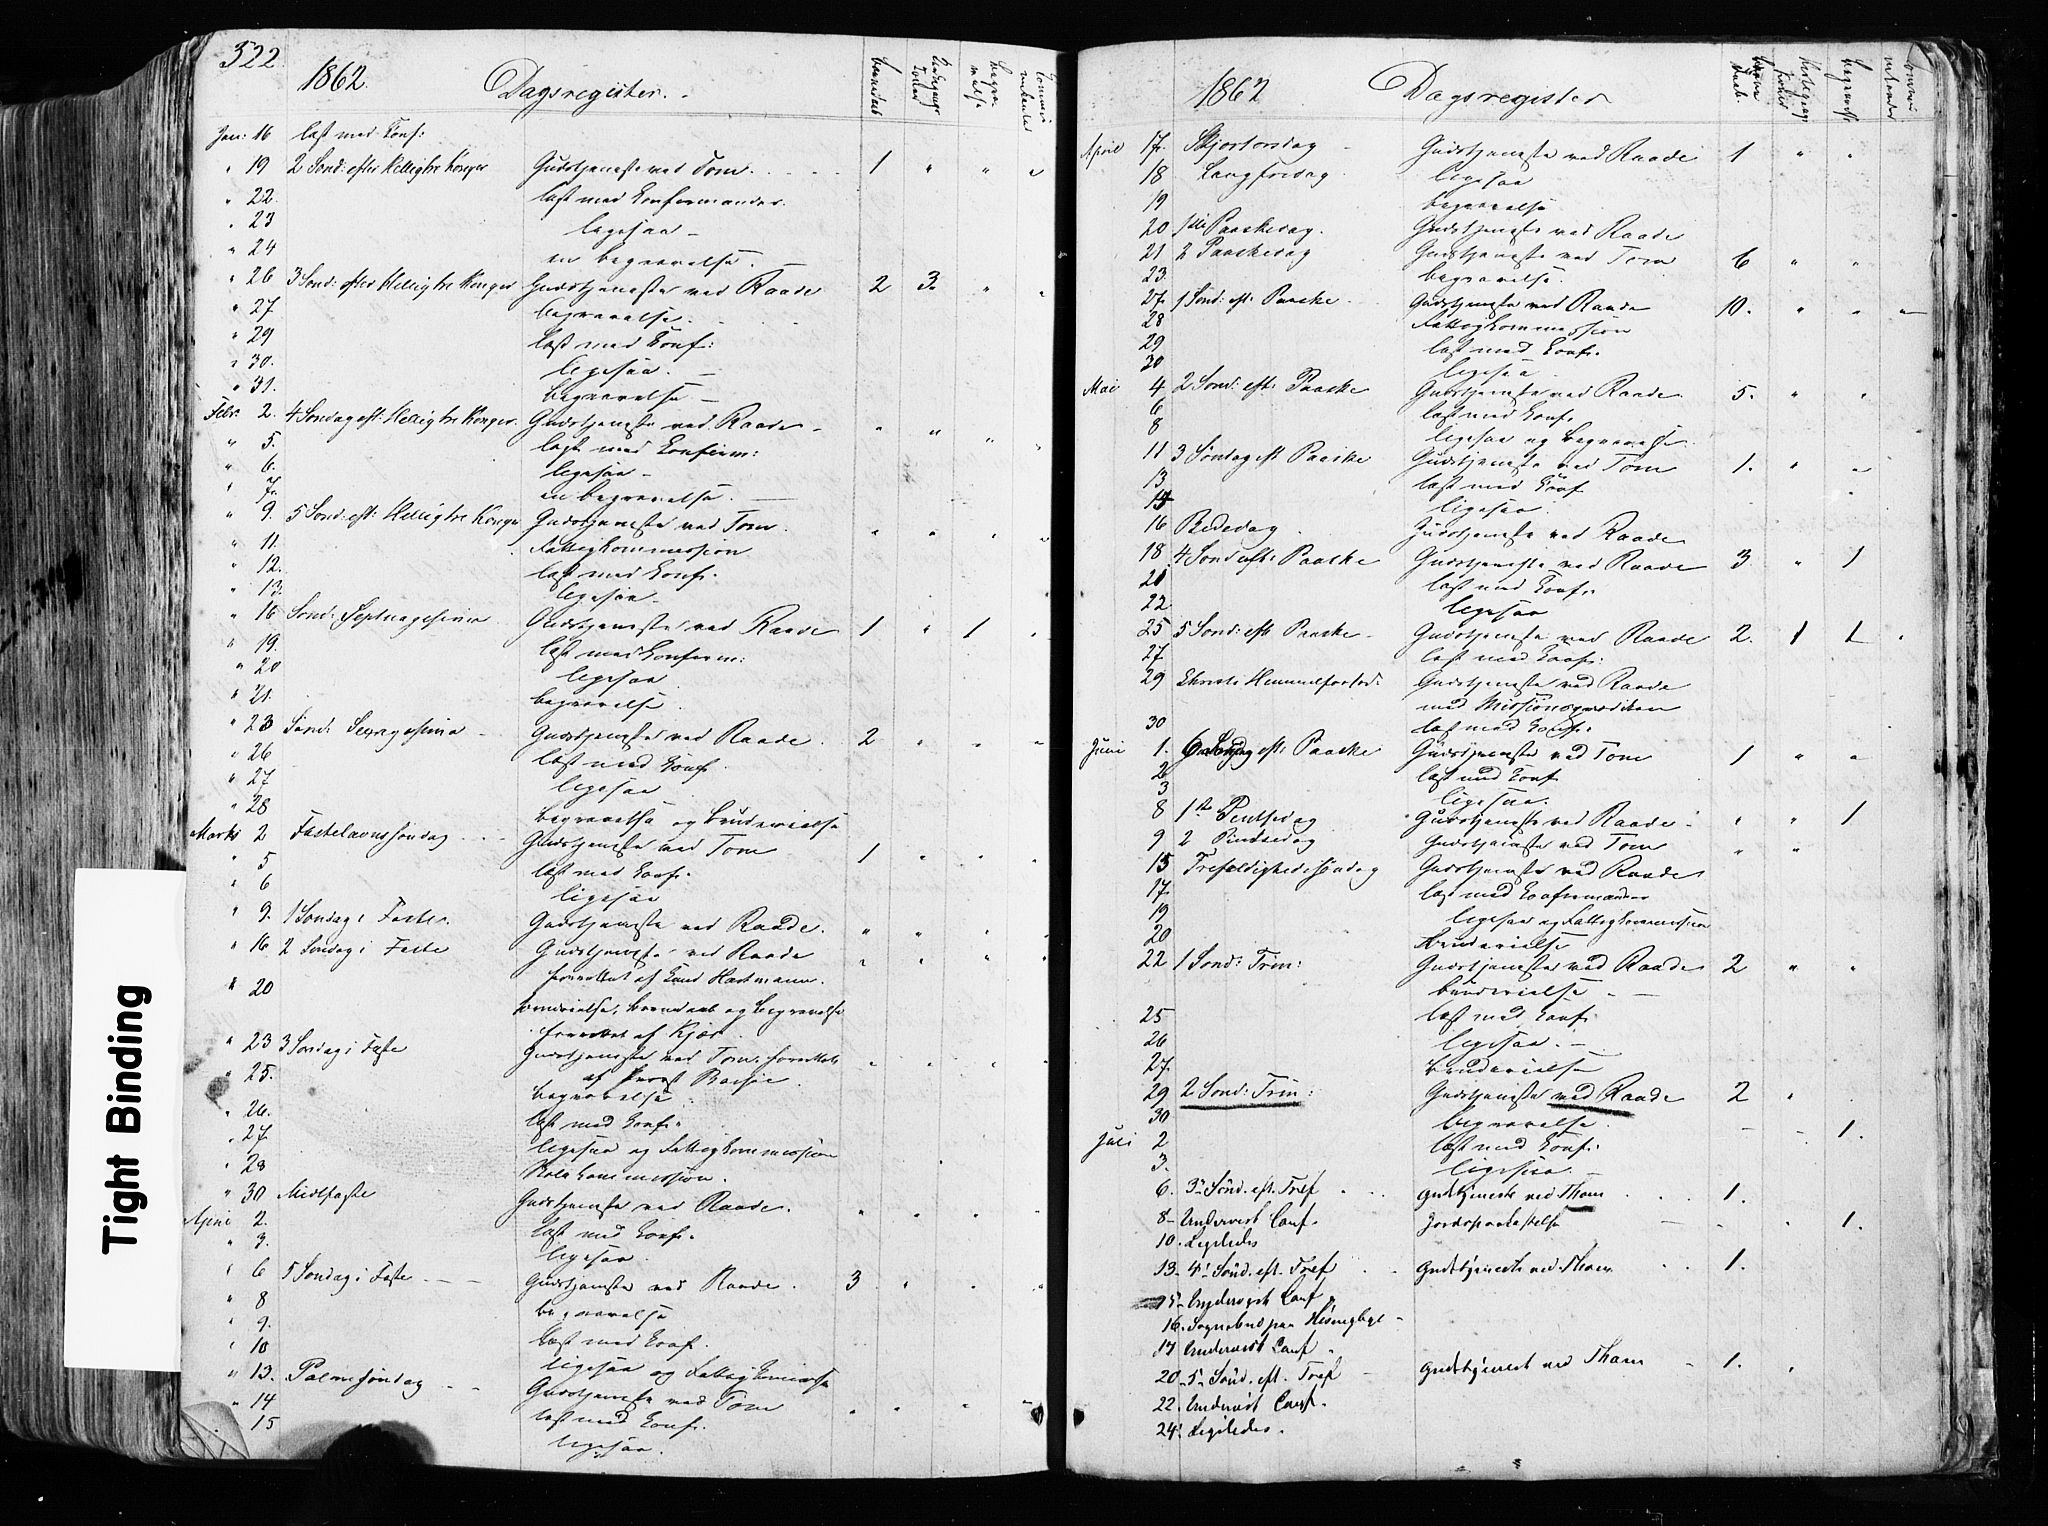 322
1862. Dagsregister.
Jan: 16 læst med Conf:
" 19 2 Sønd: efter Helligtre Konger Gudstjeneste ved Tom. 1 " " "
" 22. læst med Confirmander.
" 23 ligesaa
" 24 en begravelse.
" 26 3 Sønd: efter Helligtre Konger Gudstjeneste ved Raade 2 3. " "
" 27. begravelse.
" 29 læst med Conf:
" 30. ligesaa.
" 31. begravelse
Febr. 2. 4 Søndag eft: Helligtre Konger. Gudstjeneste ved Raade " " " "
" 5. læst med Confirm:
" 6. ligesaa
" 7. en begravelse.
" 9. 5 Sønd: eft: Helligtre Konger Gudstjeneste ved Tom. " " " "
" 11. Fattigkommission
" 12. læst med Conf.
" 13. ligesaa
" 16 Sønd: Septuagesima Gudstjeneste ved Raade 1 " 1 "
" 19. læst med Confirm:
" 20 ligesaa
" 21. begravelse
" 23 Sønd: Sexagesima Gudstjeneste ved Raade. 2 " " "
" 26 læst med Conf.
" 27 ligesaa
" 28 begravelse og Brudevielse
Marts 2 Fastelavnssøndag Gudstjeneste ved Tom 1 " " "
" 5 læst med Conf.
" 6 ligesaa
" 9. 1 Søndag i Faste. Gudstjeneste ved Raade. " " " "
" 16 2 Søndag i Faste Gudstjeneste ved Raade " " " "
forrettet af Cand Hartmann.
" 20 brudevielse, barnedaab og begravelse
forrettet af Kjær
" 23 3 Søndag i Faste Gudstjeneste ved Tom. forrettet " " " "
af Provst
" 25. begravelse
" 26. læst med Conf.
" 27. ligesaa og Fattigkommission
" 28 Skolekommission.
" 30 Midfaste Gudstjeneste ved Raade. " " " "
April 2. læst med Conf.
" 3. ligesaa
" 6 5 Søndag i Faste Gudstjeneste ved Raade. 3 " " "
" 8 begravelse
" 9. læst med Conf.
" 10 ligesaa og
" 13. Palmesøndag Gudstjeneste ved Tom " " " "
" 14 læst med Conf.
" 15 ligesaa.
Tight Binding
1862 Dagsregister
April 17. Skjærtorsdag Gudstjeneste ved Raade 1 " "
18 Langfredag. ligesaa
19 begravelse
20 1ste Paaskedag. Gudstjeneste ved Raade
21 2 Paaskedag Gudstjeneste ved Tom 6 " "
23. begravelse.
27. 1 Sønd: eft. Paaske Gudstjeneste ved Raade 10. " " "
28 Fattigkommission
29 læst med Conf.
30 ligesaa
Mai 4 2 Sønd: eft: Paaske Gudstjeneste ved Raade. 5. " "
6 læst med Conf.
8 ligesaa og Begravelse
11 3 Søndag eft Paaske Gudstjeneste ved Tom 1. " "
13 læst med Conf
15 ligesaa
16 Bededag Gudstjeneste ved Raade
18 4 Sønd eft: Paaske Gudstjeneste ved Raade 3. " 1
21 læst med Conf.
22 ligesaa
25 5 Sønd: eft Paaske Gudstjeneste ved Raade 2. 1 1 "
27. læst med Conf:
29 Christi Himmelfartsd. Gudstjeneste ved Raade
med Missionsprædiken
30 læst med Conf.
Juni 1. 6 Søndag eft: Paaske Gudstjeneste ved Tom 1 " "
2 læst med Conf
3 ligesaa.
8 1ste Pintsedag Gudstjeneste ved Raade " " 1
9 2 Pintsedag Gudstjeneste ved Tom " "
15 Trefoldighedssøndag Gudstjeneste ved Raade
17. læst med Confirmander
19 ligesaa og Fattigkommission
20 Brudevielse
22 1 Sønd: Trin: Gudstjeneste ved Raade 2 " "
brudevielse
25 læst med Conf.
26 ligesaa.
27. brudevielse
29 2 Sønd: Trin: Gudstjeneste ved Raade 2 "
30 begravelse. 1.
Juli 2 læst med Conf.
3. ligesaa.
6. 3. Sønd. eft. Tref Gudstjeneste ved Thom 1.
8 Undervist Conf. Jordspaakastelse 1.
10. Ligeledes
13. 4. Sønd. eft. Tref Gudstjeneste ved Thom 1.
15. Undervist Conf.
16. Sognebud paa
17 Undervist Conf.
20 5. Sønd. eft. Tref Gudstjenest ved Thom 1. "
22. Undervist Conf.
24. Ligeledes.